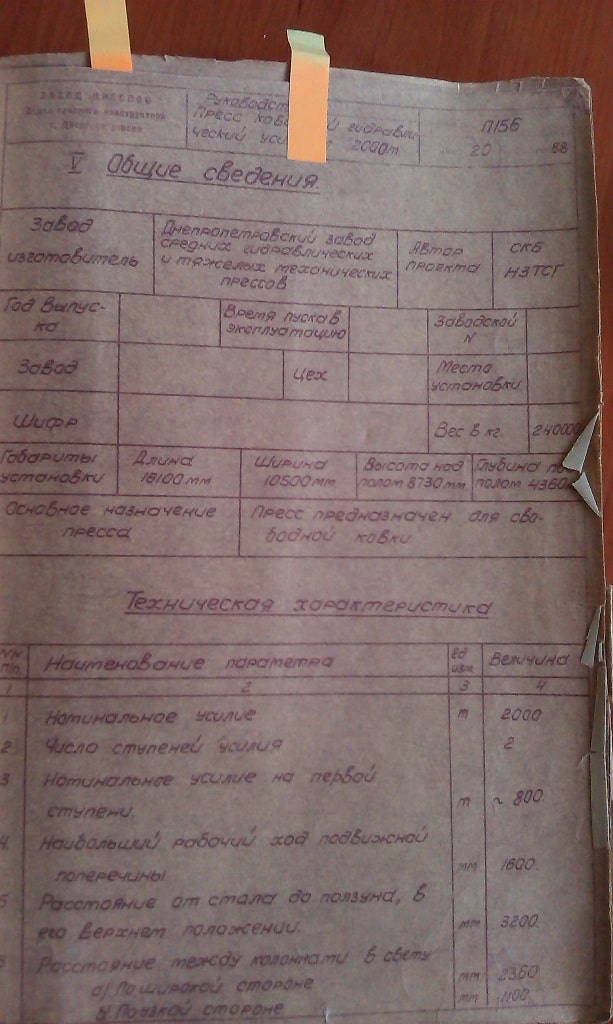 ЗАВОД ПРЕССОВ
Отдел главного конструктора
г. Днепропетровск
Руководст
Пресс ков й гидравли
ческий уси 2000т
П156
20 58
V Общие сведения.
Завод изготовитель
Днепропетровский завод
средних гидравлических
и тяжелых механических
прессов
Автор проекта
СКБ НЗТСГ
Год Выпус-
ка
Время пуска в
эксплуатацию
Заводской
N
Завод
Цех
Место
установки
Шифр
Вес в кг.
240000
Габариты
установки
Длина
16100 мм
Ширина
10500 мм
Высота над
полом 8730 мм
Глубина по
полом 4360
Основное назначение
пресса
Пресс предназначен для сво-
бодной ковки
Техническая характеристика
NN
п/п
Наименование параметра
Ед
изм.
Величина
1 2 3 4
1 Номинальное усилие т 2000
2 Число ступеней усилия 2
3 Номинальное усилие на первой
ступени. т ~ 800.
4. Наибольший рабочий ход подвижной
поперечины. мм 1600.
5 Расстояние от стола до ползуна, в
его верхнем положении. мм 3200.
Расстояние между колоннами в свету
а) По широкой стороне мм 2360
б) По узкой стороне мм 1100